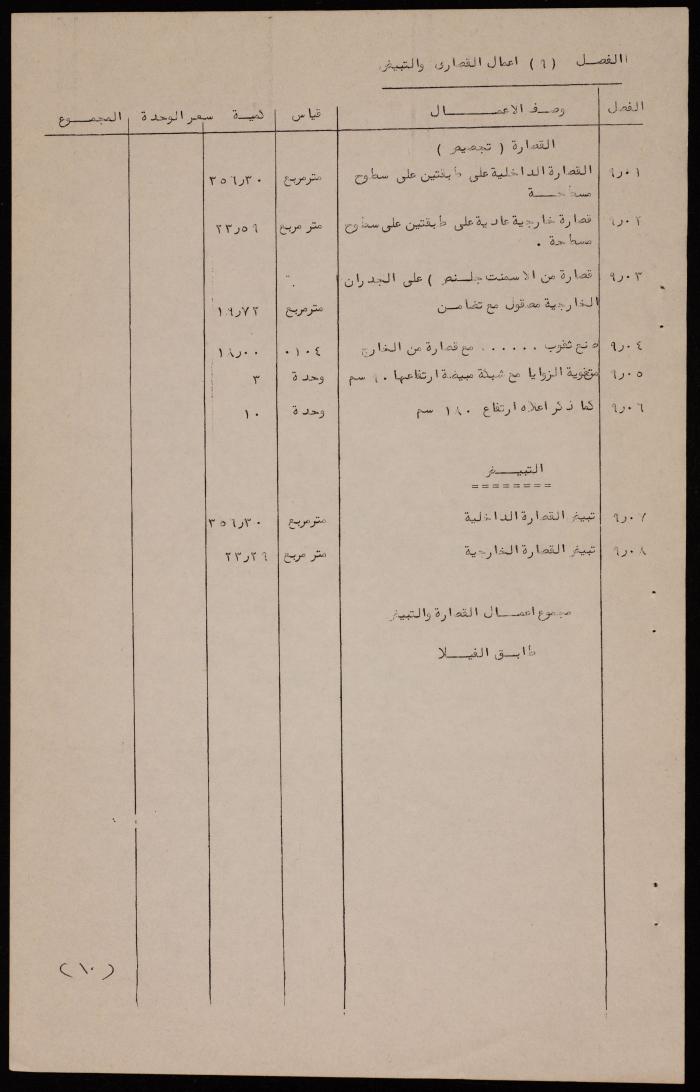 الفصل (٩) اعمال القصارى والتبيغ
الفصل وصف الاعمـــال قياس كمية سعر الوحدة المجمــوع
القصارة ( تجصيص )
٩ر٠١ القصارة الداخلية على طبقتين على سطوح مترمربع ٣٥٦ر٣٠
مسطحــة
٩ر٠٢ قصارة خارجية عادية على طبقتين على سطوح متر مربع ٢٣ر٥٩
مسطحة .
٩ر٠٣ قصارة من الاسمنت جلـنص ) على الجدران
الخارجية مصقول مع تضامن مترمربع ١٩ر٧٢
٩ر٠٤ صنع ثقوب ...... مع قصارة من الخارج ٠١٠٤ ١٨ر٠٠
٩ر٠٥ تقوية الزوايا مع شبكة مبيضة ارتفاعها ٩٠ سم وحدة ٣
٩ر٠٦ كما ذكر اعلاه ارتفاع ١٨٠ سم وحدة ١٠
التبيــغ
========
٩ر٠٧ تبيغ القصارة الداخلية مترمربع ٣٥٦ر٣٠
٩ر٠٨ تبيغ القصارة الخارجية متر مربع ٢٣ر٢٩
مجموع اعمــال القصارة والتبيغ
طابـق الفيــلا
(١٠)